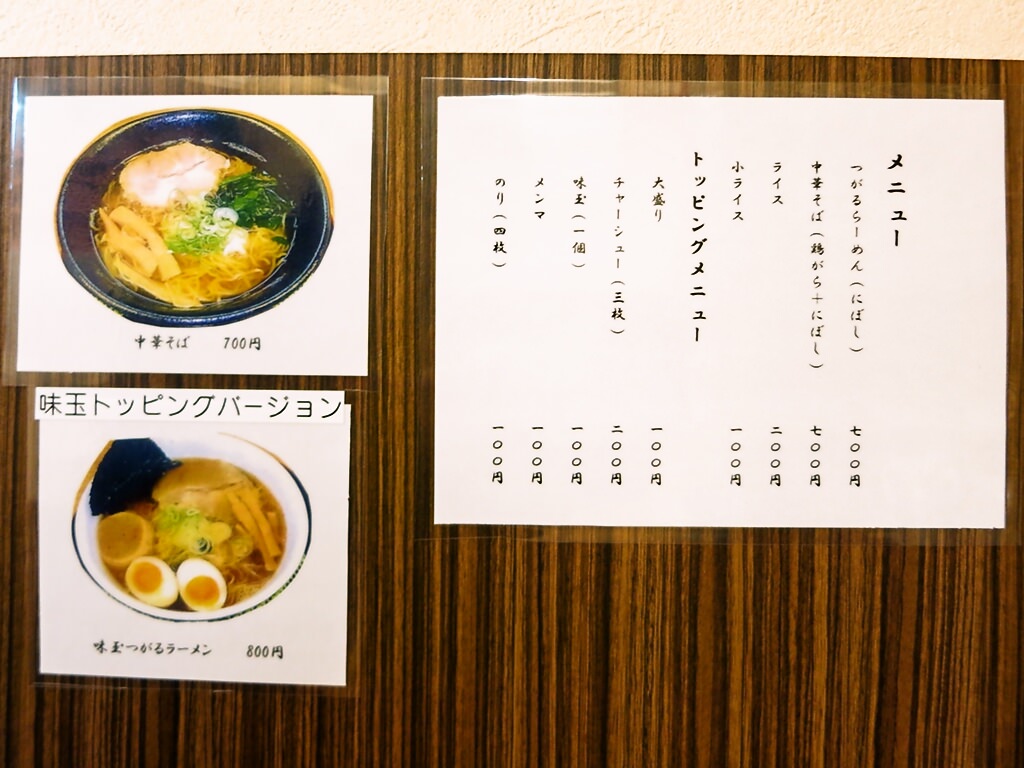 中華そば 700円
味玉トッピングバージョン
味玉つがるラーメン 800円
メニュー
つがるらーめん（にぼし） 七〇〇円
中華そば（鶏がら＋にぼし） 七〇〇円
ライス 二〇〇円
小ライス 一〇〇円
トッピングメニュー
大盛り 一〇〇円
チャーシュー（三枚） 二〇〇円
味玉（一個） 一〇〇円
メンマ 一〇〇円
のり（四枚） 一〇〇円